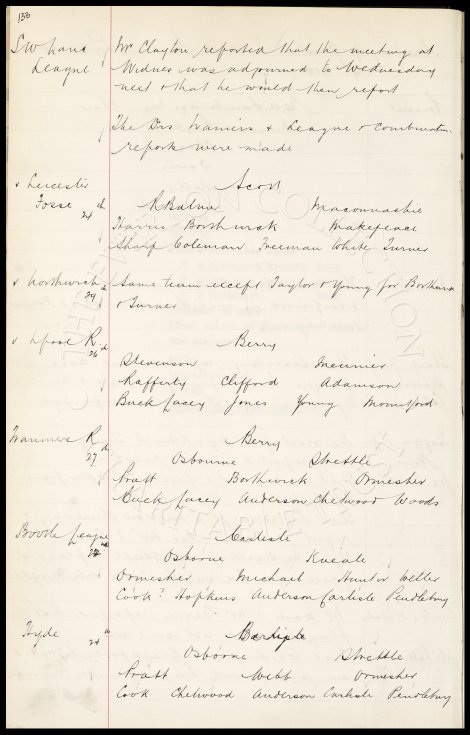 156
S W Lancs League
Mr Clayton reported that the meeting at
Widnes was adjourned to Wednesday
next & that he would then report
The Drs Trainers & League & Combination
reports were made
v Leicester Fosse 24th
Scott
R Balmer Maconnachie
Harris Borthwick Makepeace
Sharp Coleman Freeman White Turner
v Northwich 29th
Same team except Taylor & Young for Borthwick
& Turner
v Lpool R 26th
Berry
Stevenson Meunier
Rafferty Clifford Adamson
Buck Lacey Jones Young Mountford
Tranmere R 27th
Berry
Osbourne Strettle
Pratt Borthwick Ormesher
Buck Lacey Anderson Chetwood Woods
Bootle League 24th
Carlisle
Osborne Kneale
Ormesher Michael Hunter Weller
Cook? Hopkins Anderson Carlisle Pendlebury
Hyde 24th
Osborne Strettle
Pratt Webb Ormesher
Cook Chetwood Anderson Carlisle Pendlebury